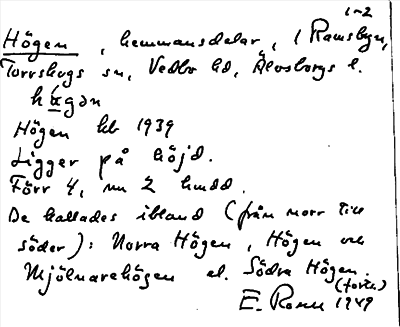 1-2
Högen, hemmansdelar, i Ramsbyn,
Torrskogs sn, Vedbo hd, Älvsborgs l.
hǿgən
Högen kb 1939
Ligger på höjd.
Förr 4, nu 2 hmdd.
De kallades ibland (från norr till
söder): Norra Högen, Högen och
Mjölnarehögen el. Södra Högen.
(torn)
E. Rosen 1949